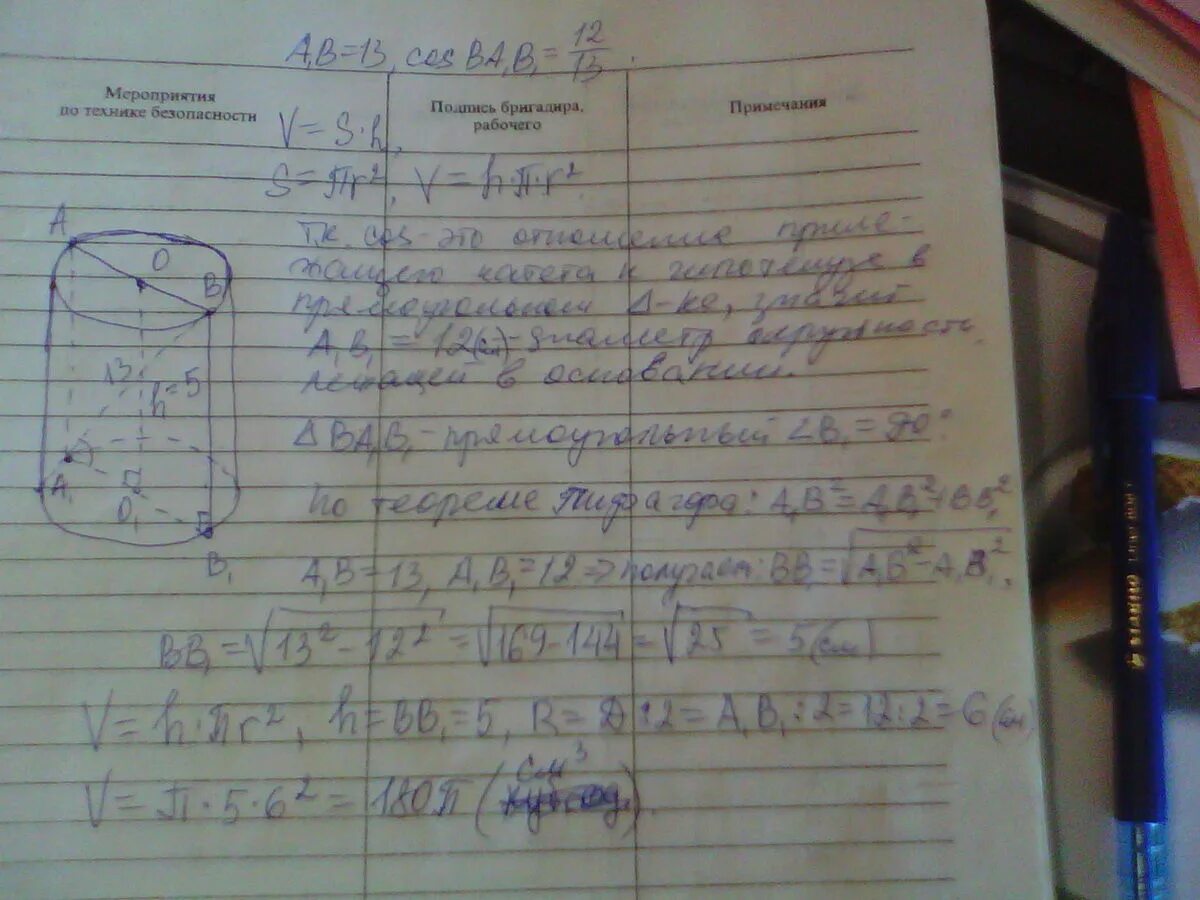 A₁B=13, cos BA₁B₁ = 12/13.
Мероприятия
по технике безопасности
Подпись бригадира,
рабочего
Примечания
V = S·h,
S = πr², V = h·π·r²
Т.к. cos - это отношение приле-
жащего катета к гипотенузе в
прямоугольном Δ-ке, значит
A₁B₁ = 12(см) - диаметр окружности
лежащей в основании.
A
O
B
13
h=5
A₁
O₁
B₁
Δ BA₁B₁ - прямоугольный ∠B₁ = 90°
По теореме Пифагора: A₁B² = A₁B₁² + BB₁²
A₁B = 13, A₁B₁ = 12 => получаем: BB₁ = √A₁B² - A₁B₁².
BB₁ = √13² - 12² = √169-144 = √25 = 5 (см)
V = h·πr², h = BB₁ = 5, R = D:2 = A₁B₁:2 = 12:2 = 6 (см)
V = π·5·6² = 180π (см³).
STABILO